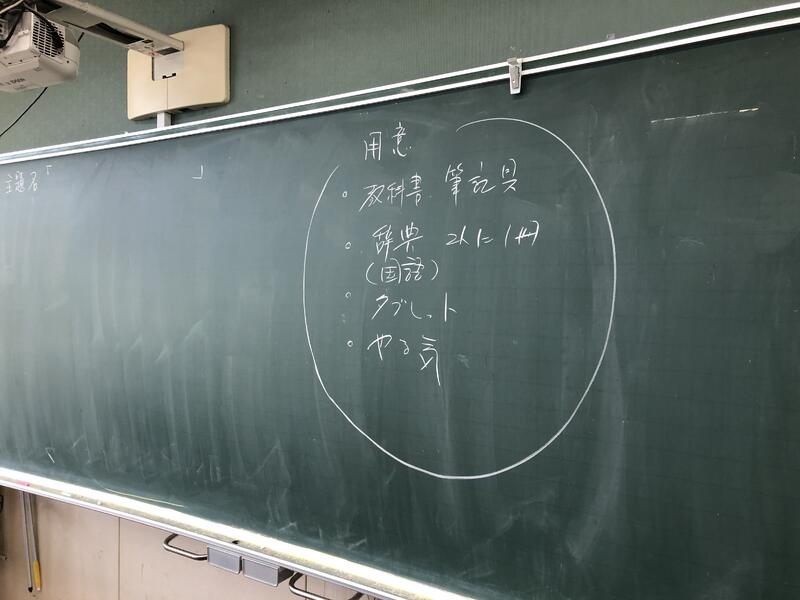 主題名「　　　」
用意
○ 教科書 筆記具
○ 辞典 2人に1冊
(国語)
○ タブレット
○ やる気